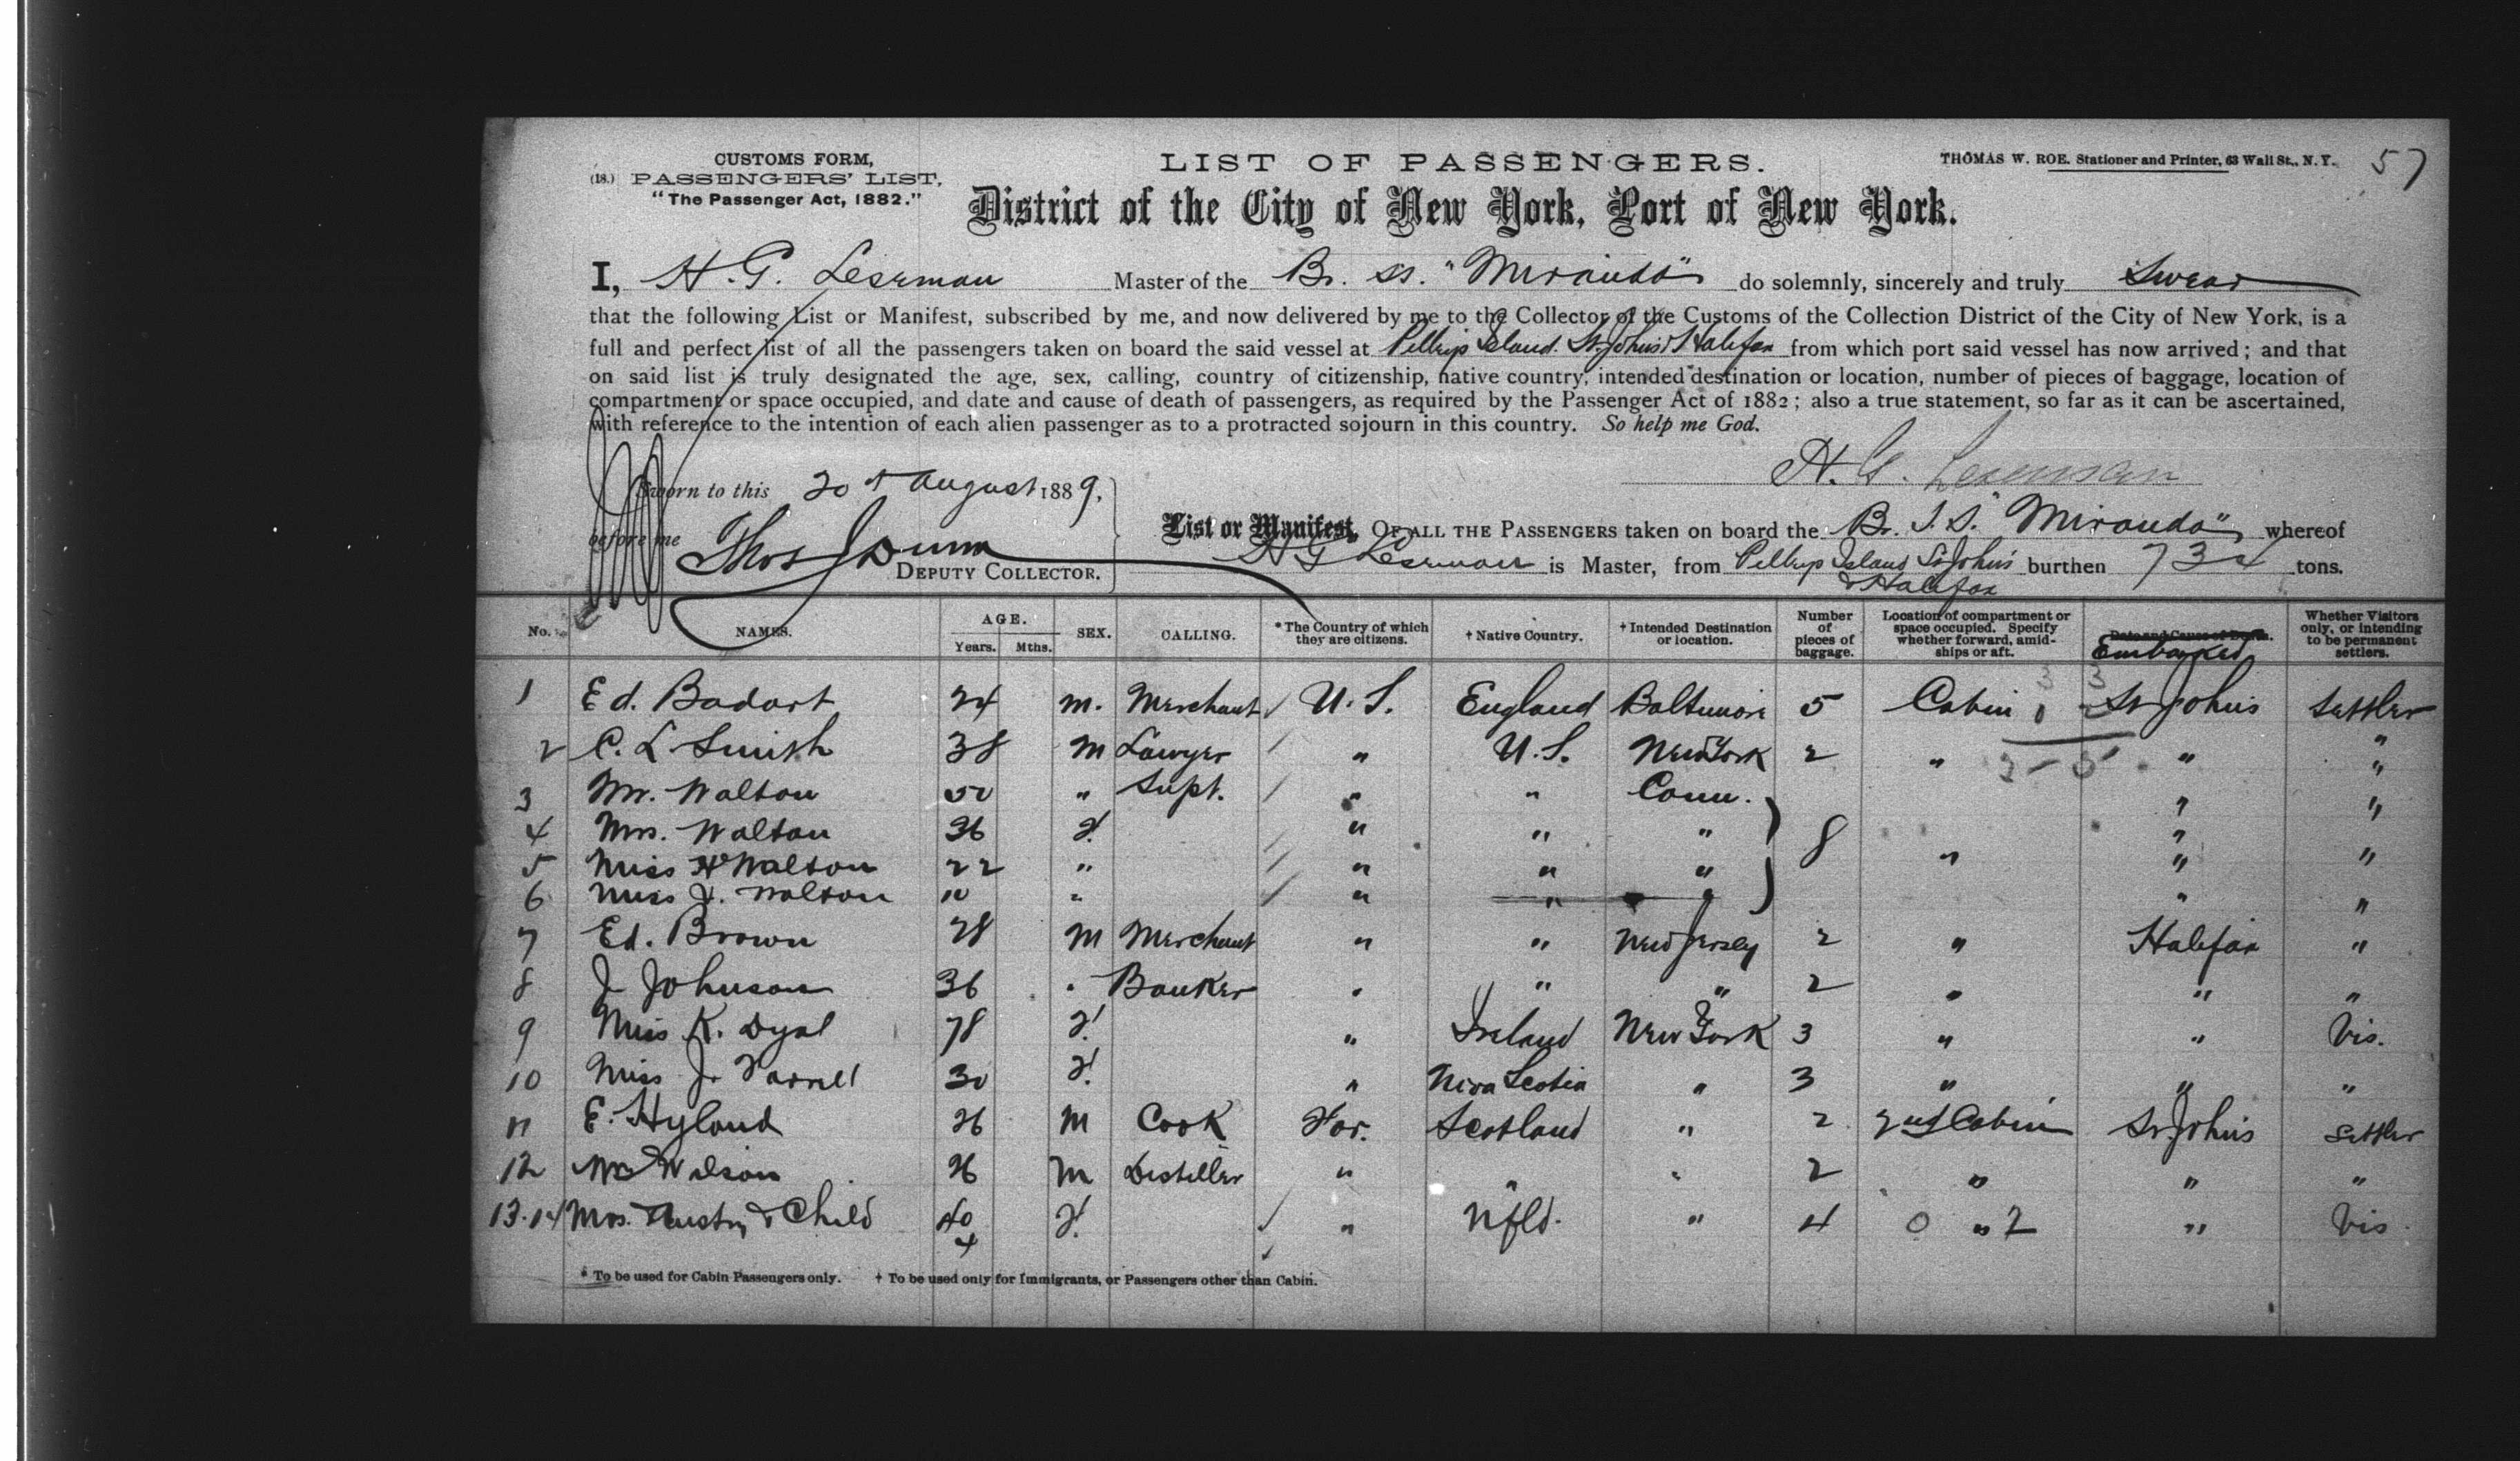 CUSTOMS FORM,
(18.) PASSENGERS' LIST,
"The Passenger Act, 1882."
LIST OF PASSENGERS.
THOMAS W. ROE. Stationer and Printer, 63 Wall St., N.Y.
57
District of the City of New York, Port of New York.
I, H. G. Leseman Master of the Br. SS. "Miranda" do solemnly, sincerely and truly Swear
that the following List or Manifest, subscribed by me, and now delivered by me to the Collector of the Customs of the Collection District of the City of New York, is a
full and perfect list of all the passengers taken on board the said vessel at Island. St. Johns & Halifax from which port said vessel has now arrived; and that
on said list is truly designated the age, sex, calling, country of citizenship, native country, intended destination or location, number of pieces of baggage, location of
compartment or space occupied, and date and cause of death of passengers, as required by the Passenger Act of 1882; also a true statement, so far as it can be ascertained,
with reference to the intention of each alien passenger as to a protracted sojourn in this country. So help me God.
H. G. Leseman
Sworn to this 20 August 1889,
before me Thos J Dunn
DEPUTY COLLECTOR.
List or Manifest, OF ALL THE PASSENGERS taken on board the Br. S.S. "Miranda" whereof
H G Leseman is Master, from Island St Johns & Halifax burthen 734 tons.
No. NAMES. AGE. Years. Mths. SEX. CALLING. *The Country of which they are citizens. † Native Country. † Intended Destination or location. Number of pieces of baggage. Location of compartment or space occupied. Specify whether forward, amidships or aft. Date and Cause of Death. Embarked Whether Visitors only, or intending to be permanent settlers.
1 Ed. Badart 24 M. Merchant U.S. England Baltimore 5 Cabin St Johns Settler
2 C. L. Smith 38 M Lawyer " U.S. New York 2 " " "
3 Mr. Walton 50 " Supt. " " Conn. " "
4 Mrs. Walton 36 F. " " " 8 " "
5 Miss H Walton 22 " " " " " " "
6 Miss Walton 10 " " " " " "
7 Ed. Brown 28 M Merchant " " New Jersey 2 " Halifax "
8 J Johnson 36 " Banker " " " 2 " " "
9 Miss K. Dyal 28 F. " Ireland New York 3 " " Vis.
10 Miss J. Farrell 30 F. " Nova Scotia " 3 " " "
11 E. Hyland 26 M Cook For. Scotland " 2 2nd Cabin St. Johns Settler
12 Wilson 26 M Distiller " " " 2 " " "
13.14 Mrs. Austin & Child 40 4 F. " Nfld. " 4 0 " 2 " Vis
* To be used for Cabin Passengers only. † To be used only for Immigrants, or Passengers other than Cabin.